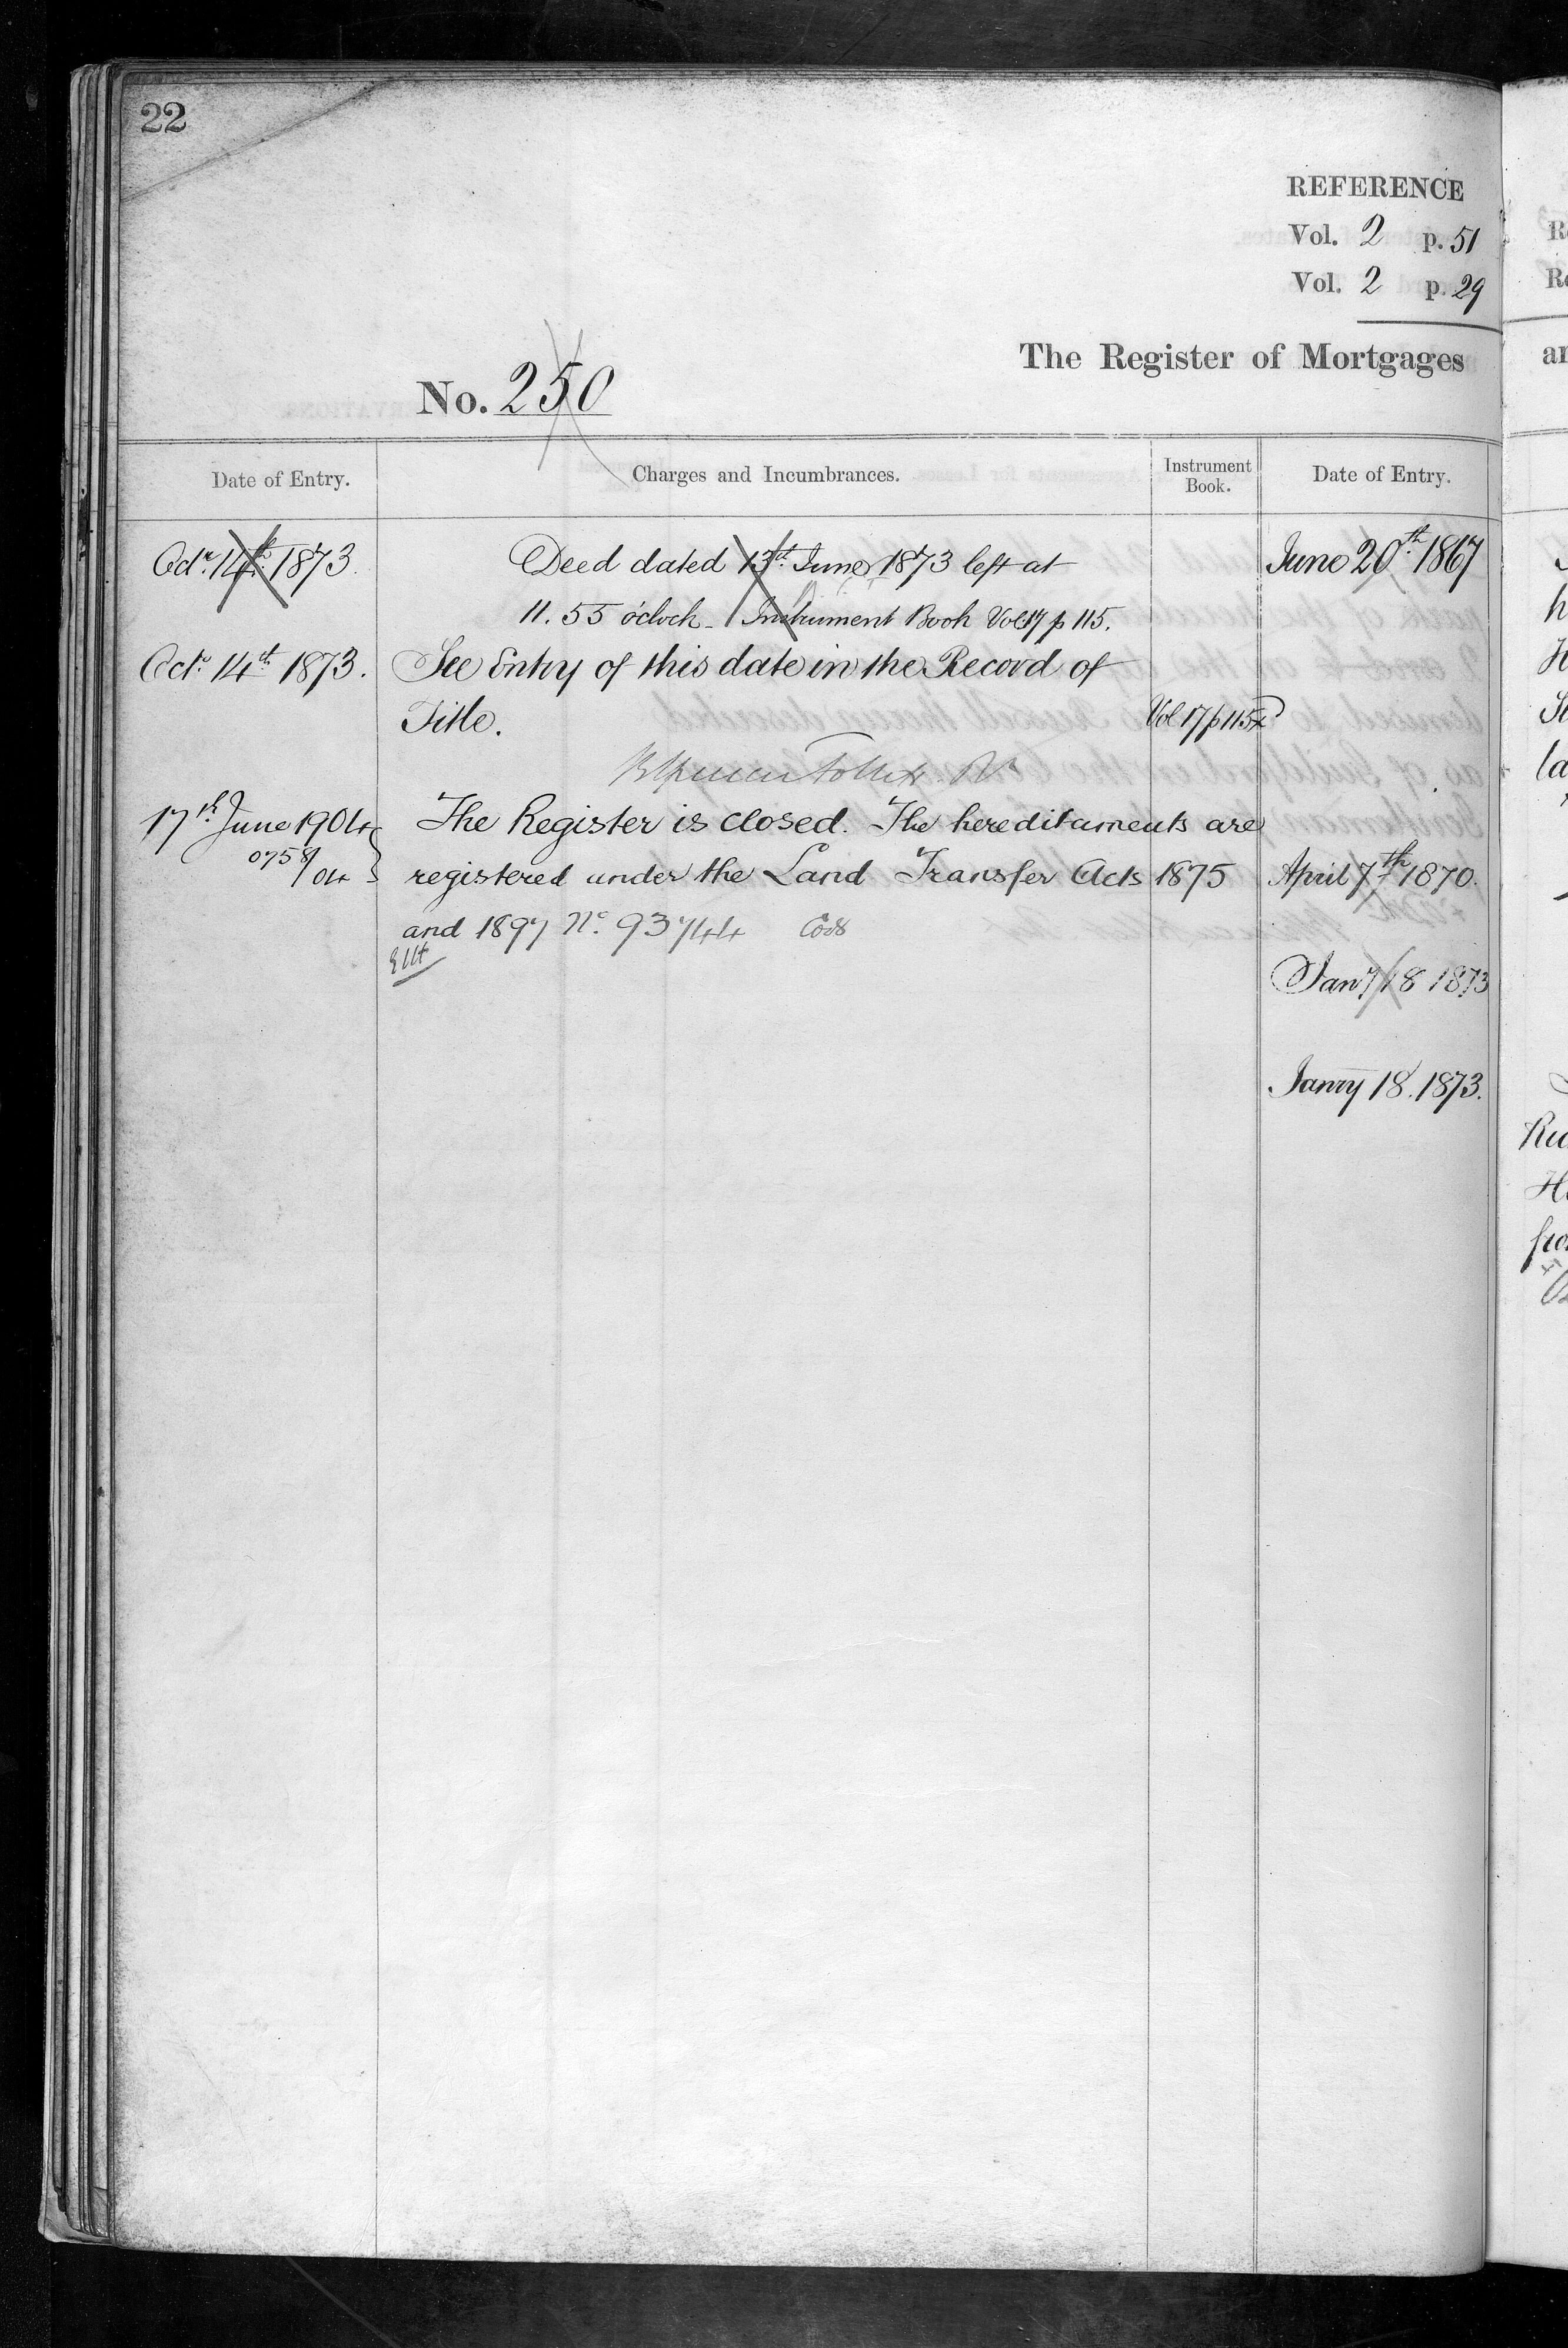 22
REFERENCE
Vol. 2 p. 51
Vol. 2 p. 29
The Register of Mortgages
No. 250
Date of Entry. Charges and Incumbrances. Instrument Book. Date of Entry.
Octr. 14th 1873. Deed dated 13th June 1873 left at
11.55 o'clock - Instrument Book Vol 17 p 115.
Octr 14th 1873. See Entry of this date in the Record of
Title. Vol 17 p 115
17th June 1904 The Register is closed. The hereditaments are
0758/04 registered under the Land Transfer Acts 1875
and 1897 No. 93744
June 20th 1867
April 7th 1870.
Jany 18 1873
Janry 18. 1873.